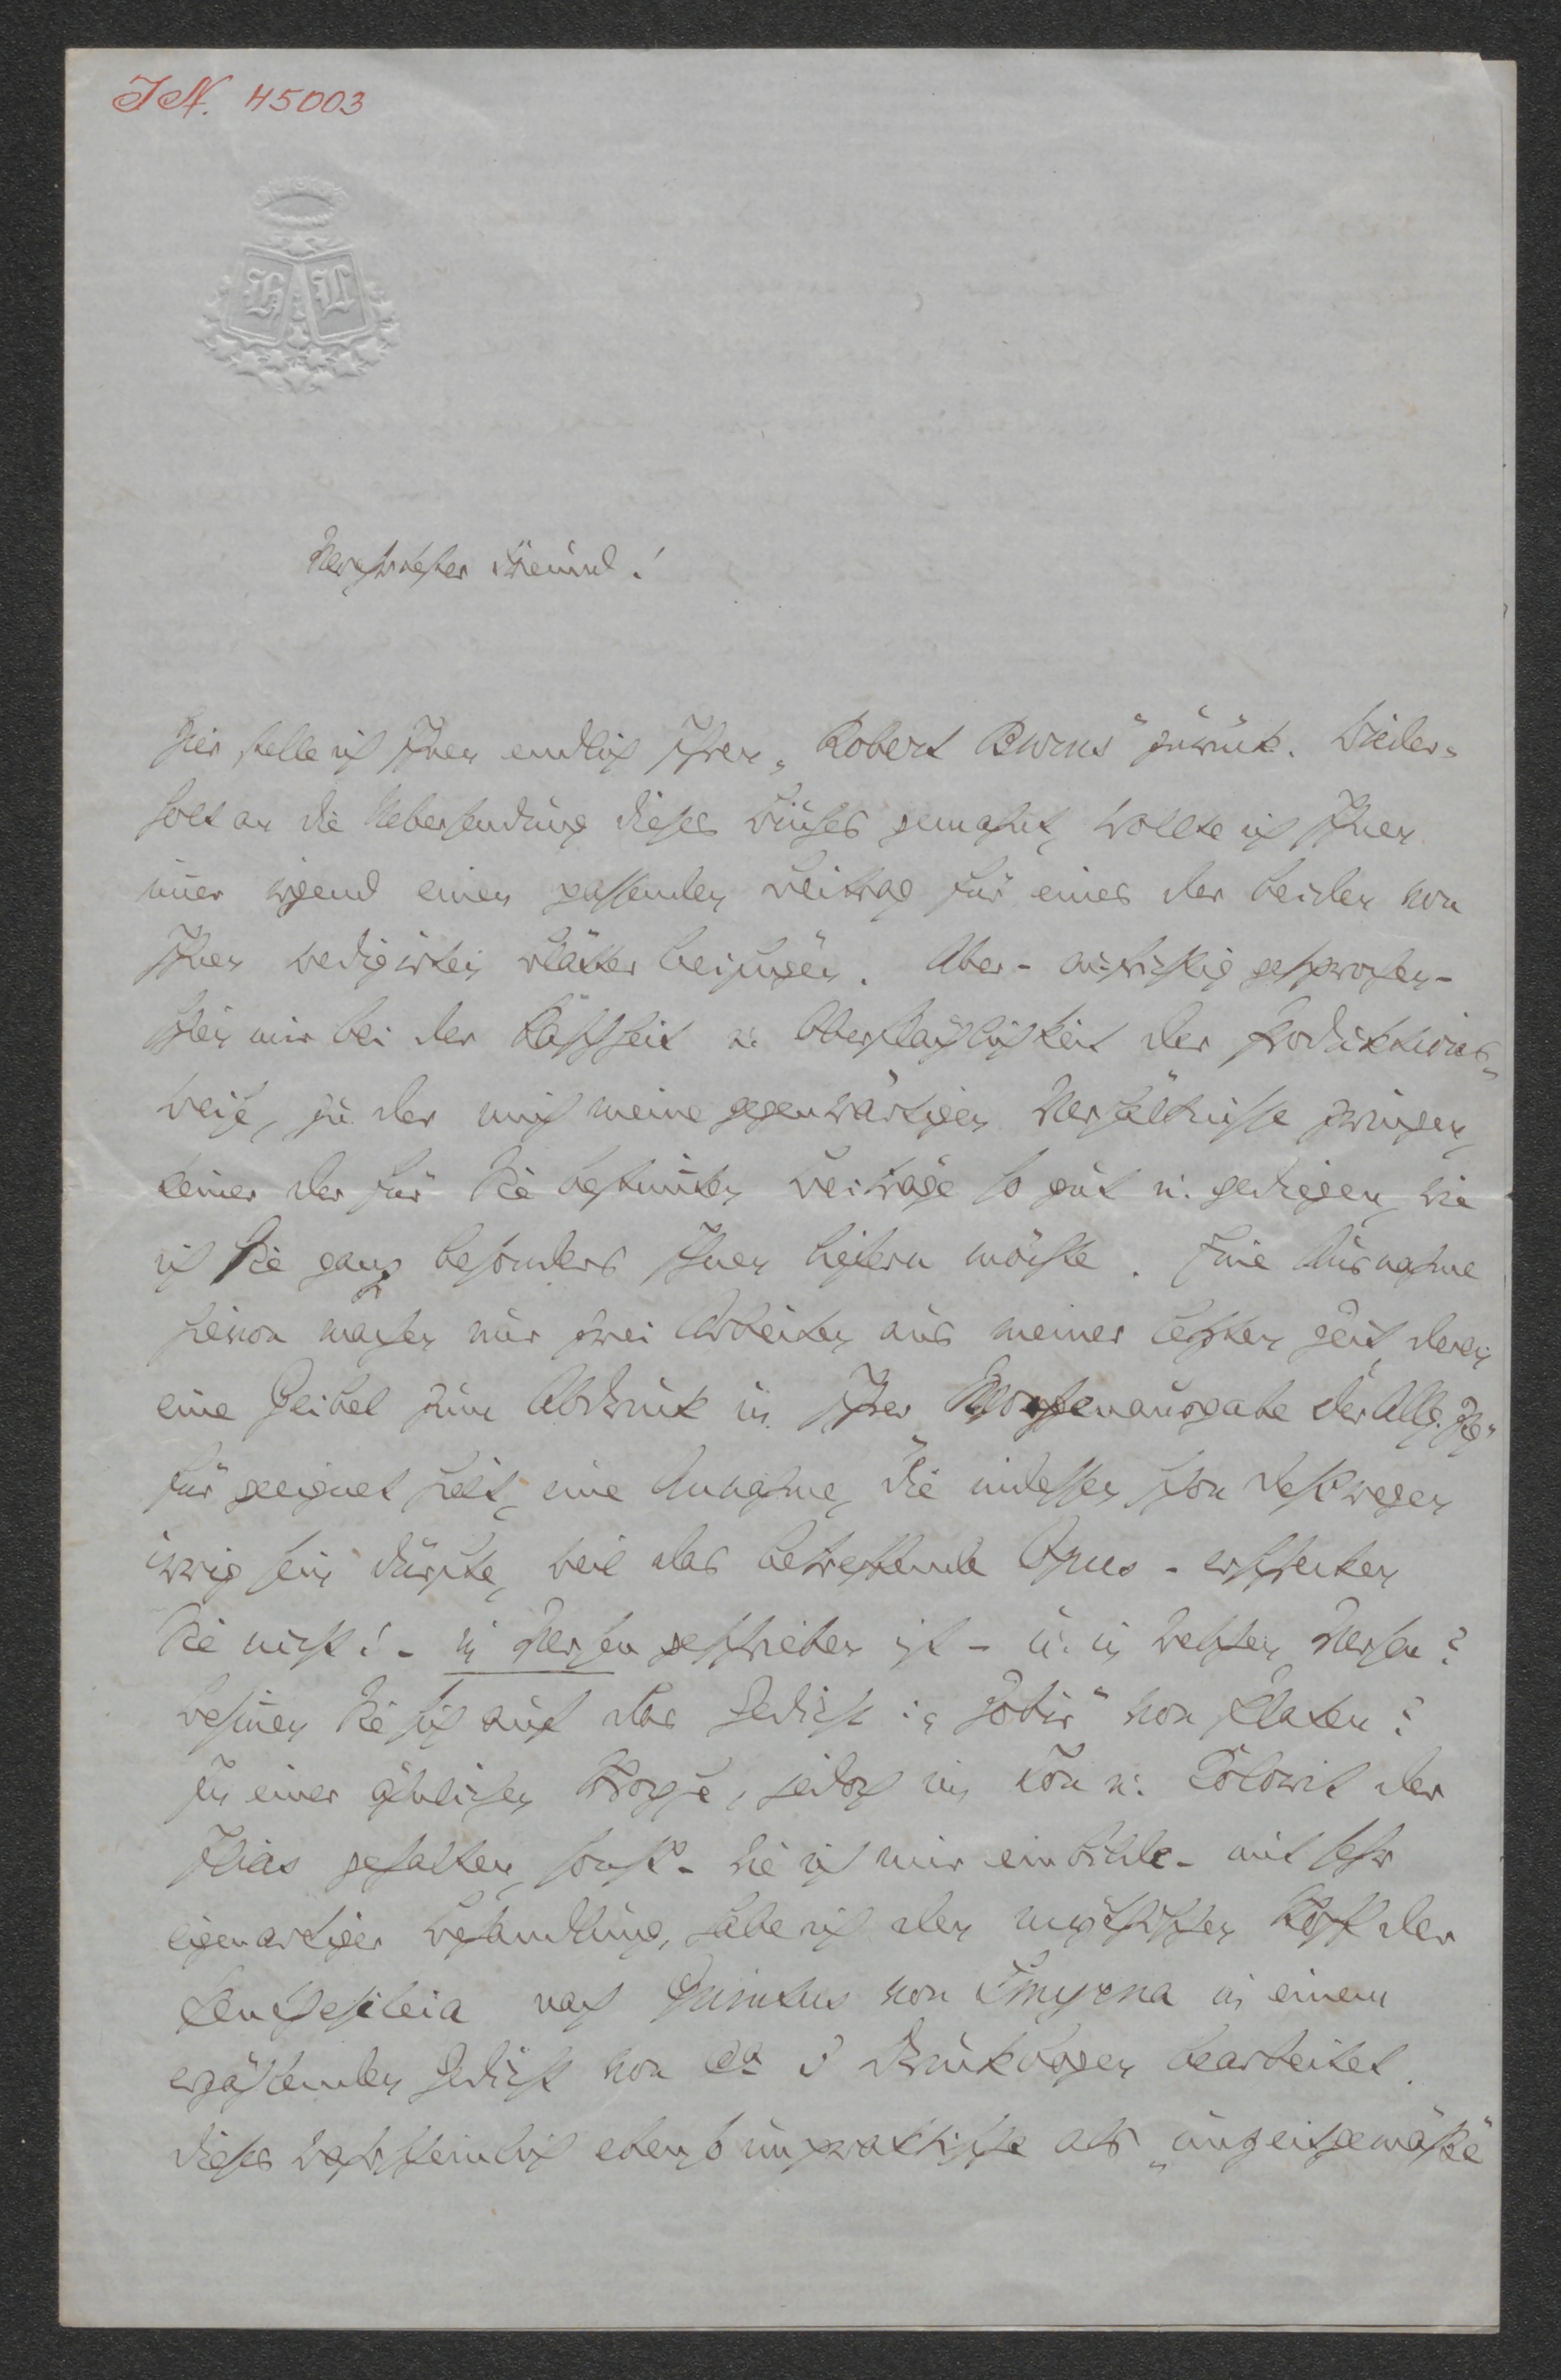 I.N. 45003
H L
Verehrtester Freund!
Hier stelle ich Ihnen endlich Ihren „Robert Burns" zurück. Wieder-
holt an die Uebersendung dieses Buches gemahnt, wollte ich Ihnen
immer irgend einen passenden Beitrag für eines der beiden von
Ihnen redigirten Blätter beifügen. Aber - aufrichtig gesprochen -
schien mir bei der Raschheit u. Oberflächlichkeit der Produktions-
weise, zu der mich meine gegenwärtigen Verhältnisse zwingen,
keiner der für Sie bestimmten Beiträge so gut u. gediegen, wie
ich Sie ganz besonders Ihnen liefern möchte. Eine Ausnahme
hievon machen nur zwei Arbeiten aus meiner letzten Zeit, deren
eine Geibel zum Abdruck in Ihrer „Wochenausgabe der Allg. Ztg."
für geeignet hält, eine Annahme, die indessen schon deßwegen
irrig sein dürfte, weil das betreffende Opus - erschrecken
Sie nicht! - in Versen geschrieben ist - u. in welchen Versen?
Besinnen Sie sich auf das Gedicht: „Zobir" von Platen?
In einer ähnlichen Strophe, jedoch im Ton u. Colorit der
Ilias gehalten, sonst - wie ich mir einbilde - mit sehr
eigenartiger Behandlung, habe ich den mythischen Stoff der
Penthesileia nach Quintus von Smyrna in einem
erzählenden Gedicht von ca 3 Druckbogen bearbeitet.
Dieses wahrscheinlich ebenso unpraktische als „unzeitgemäße"